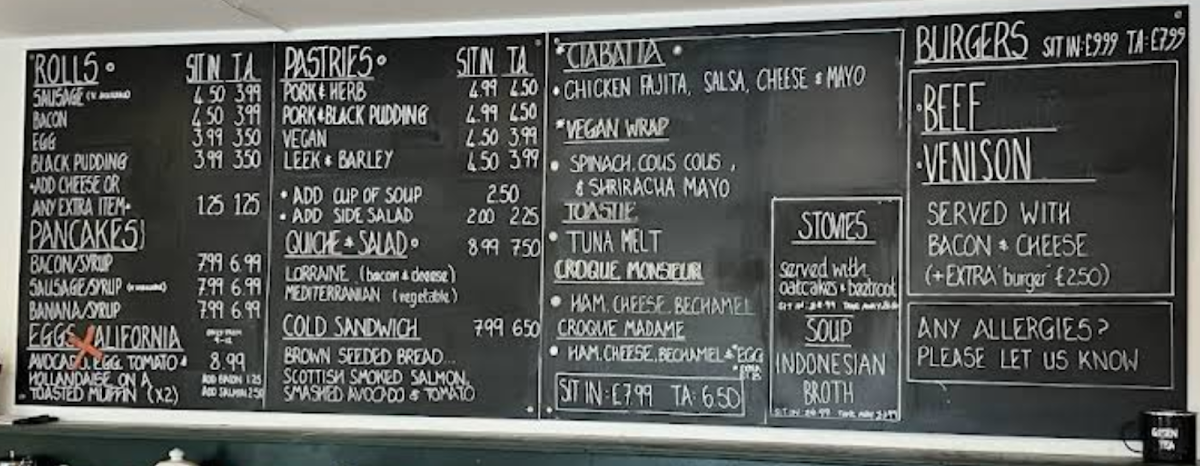 ROLLS
SIT IN TA
SAUSAGE
4.50 3.99
BACON
4.50 3.99
EGG
3.99 3.50
BLACK PUDDING
3.99 3.50
ADD CHEESE OR
ANY EXTRA ITEM
1.25 1.25
PANCAKES
BACON/SYRUP
7.99 6.99
SAUSAGE/SYRUP
7.99 6.99
BANANA/SYRUP
7.99 6.99
EGGS CALIFORNIA
AVOCADO, EGG, TOMATO &
8.99
HOLLANDAISE ON A
ADD BACON 1.25
TOASTED MUFFIN (X2)
ADD SALMON 2.50
PASTRIES
SIT IN TA
PORK & HERB
4.99 4.50
PORK & BLACK PUDDING
4.99 4.50
VEGAN
4.50 3.99
LEEK & BARLEY
4.50 3.99
• ADD CUP OF SOUP
2.50
• ADD SIDE SALAD
2.00 2.25
QUICHE & SALAD
8.99 7.50
LORRAINE (bacon & cheese)
MEDITERRANIAN (vegetable)
COLD SANDWICH
7.99 6.50
BROWN SEEDED BREAD...
SCOTTISH SMOKED SALMON,
SMASHED AVOCADO & TOMATO
*CIABATTA
• CHICKEN FAJITA, SALSA, CHEESE & MAYO
*VEGAN WRAP
• SPINACH, COUS COUS,
& SHRIRACHA MAYO
TOASTIE
• TUNA MELT
CROQUE MONSIEUR
• HAM, CHEESE, BECHAMEL
CROQUE MADAME
• HAM, CHEESE, BECHAMEL & *EGG
SIT IN: £7.99 TA: 6.50
STOVIES
served with
oatcakes & beetroot
SOUP
INDONESIAN
BROTH
BURGERS SIT IN: £9.99 TA: £7.99
• BEEF
• VENISON
SERVED WITH
BACON & CHEESE
(+EXTRA burger £2.50)
ANY ALLERGIES?
PLEASE LET US KNOW
GREEN
TEA